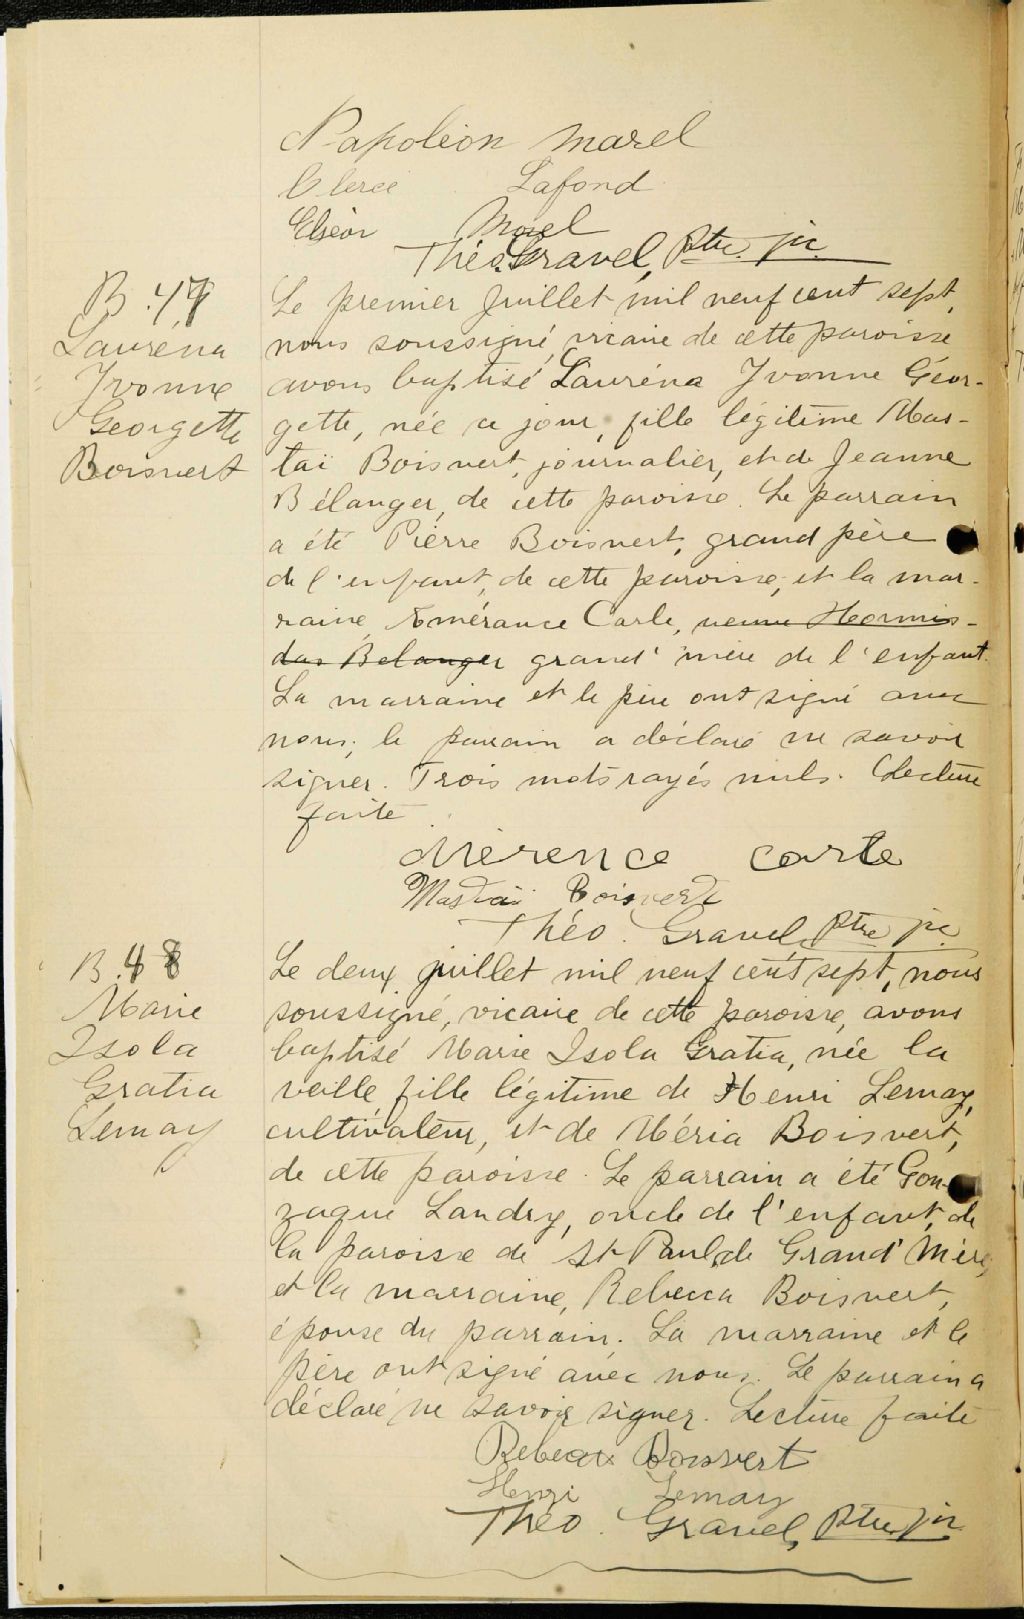 Napoléon Morel
Clercé Lafond
Elséor Morel
Théo. Gravel, Ptre. jr.
B. 47
Lauréna
Yvonne
Georgette
Boisvert
Le premier Juillet mil neuf cent sept,
nous soussigné, vicaire de cette paroisse
avons baptisé Lauréna Yvonne Géor-
gette, née ce jour, fille légitime Mas-
taï Boisvert, journalier, et de Jeanne
Bélanger, de cette paroisse. Le parrain
a été Pierre Boisvert, grand père
de l'enfant, de cette paroisse, et la mar-
raine, Emérance Carle, veuve Hormis-
das Belanger grand' mère de l'enfant.
La marraine et le père ont signé avec
nous; le parrain a déclaré ne savoir
signer. Trois mots rayés nuls. Lecture
faite
Mérence Carle
Mastaï Boisvert
Théo. Gravel, Ptre jr.
B. 48
Marie
Isola
Gratia
Lemay
Le deux juillet mil neuf cent sept, nous
soussigné, vicaire de cette paroisse, avons
baptisé Marie Isola Gratia, née la
veille fille légitime de Henri Lemay,
cultivateur, et de Méria Boisvert,
de cette paroisse. Le parrain a été Gon-
zague Landry, oncle de l'enfant, de
la paroisse de St Paul, de Grand' Mère,
et la marraine, Rebecca Boisvert,
épouse du parrain. La marraine et le
père ont signé avec nous. Le parrain a
déclaré ne savoir signer. Lecture faite
Rebecca Boisvert
Henri Lemay
Théo. Gravel, Ptre jr.